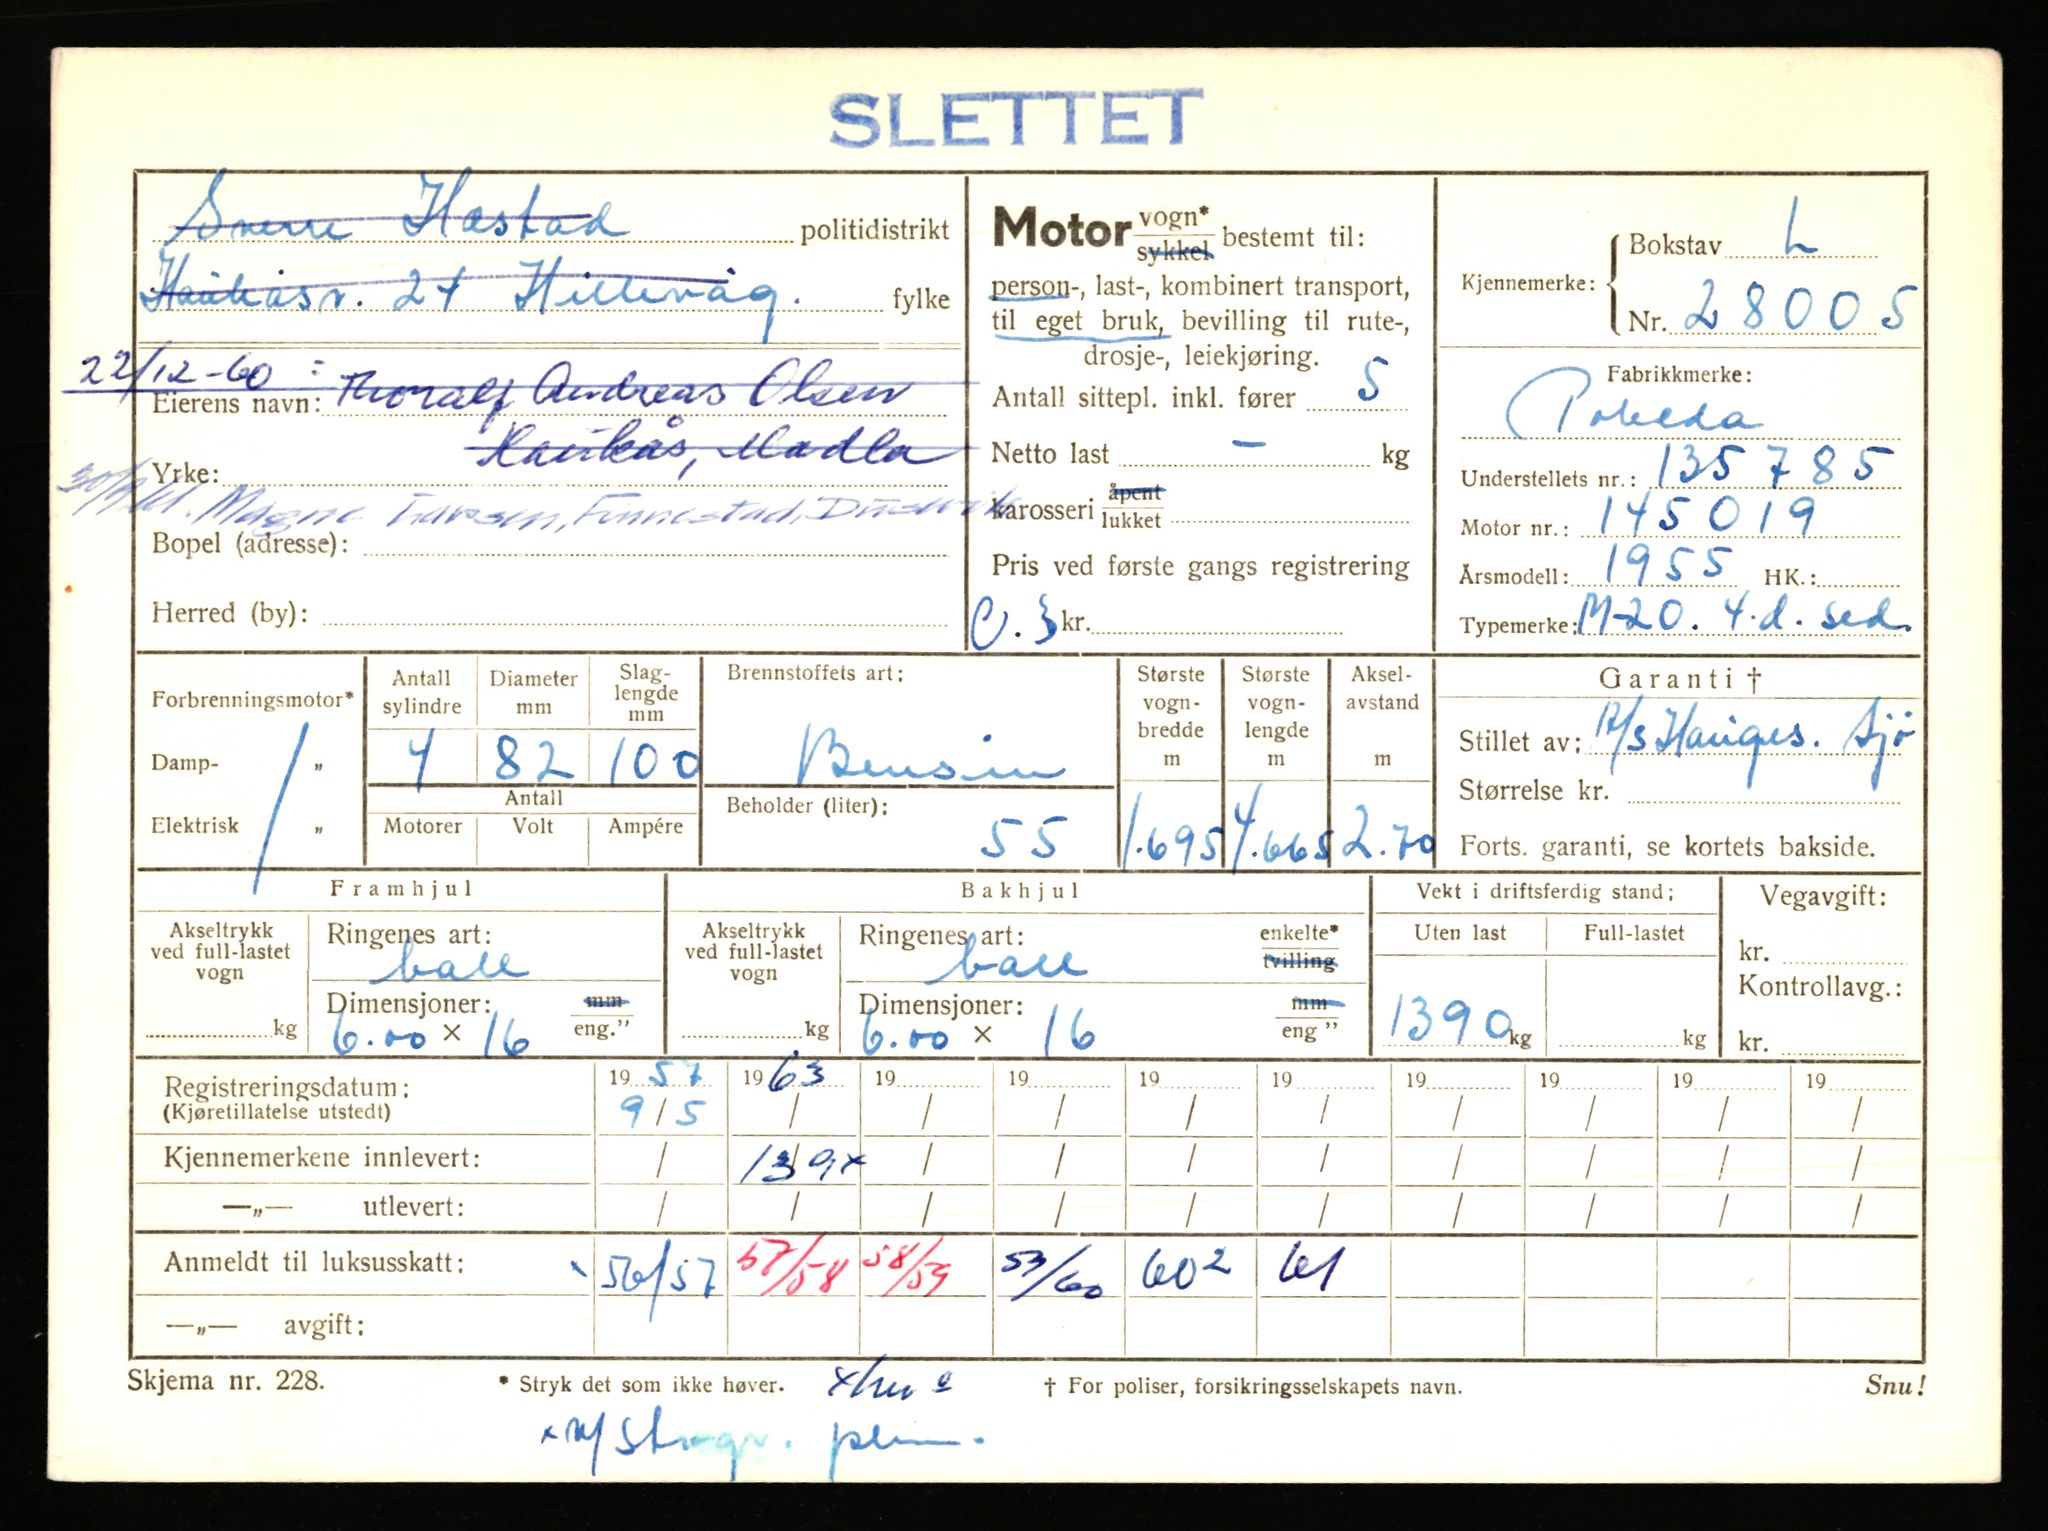 SLETTET
Sverre Håstad politidistrikt
Haukåsv. 24 Hillevåg. fylke
22/12-60: Thoralf Andreas Olsen
Eierens navn:
Haukås, Madla
Yrke:
Magne Larsen, Finnestad, Dusavik
Bopel (adresse):
Herred (by):
Motor vogn* sykkel bestemt til:
person-, last-, kombinert transport,
til eget bruk, bevilling til rute-,
drosje-, leiekjøring.
Antall sittepl. inkl. fører 5
Netto last - kg
karosseri åpent lukket
Pris ved første gangs registrering
kr.
Kjennemerke: Bokstav L
Nr. 28005
Fabrikkmerke:
Pobeda
Understellets nr.: 135785
Motor nr.: 145019
Årsmodell: 1955 HK.:
Typemerke: M-20. 4.d. sed.
Forbrenningsmotor*
Damp- „
Elektrisk „
Antall sylindre 4
Diameter mm 82
Slag-lengde mm 100
Antall
Motorer Volt Ampére
Brennstoffets art:
Bensin
Beholder (liter):
55
Største vogn-bredde m 1.695
Største vogn-lengde m 4.665
Aksel-avstand m 2.70
Garanti †
Stillet av: A/S Hauges. Sjø
Størrelse kr.
Forts. garanti, se kortets bakside.
Framhjul
Akseltrykk ved full-lastet vogn
kg
Ringenes art:
ball
Dimensjoner: mm
6.00 × 16 eng.”
Bakhjul
Akseltrykk ved full-lastet vogn
kg
Ringenes art: enkelte*
ball tvilling
Dimensjoner: mm
6.00 × 16 eng ”
Vekt i driftsferdig stand:
Uten last Full-lastet
1390 kg kg
Vegavgift:
kr.
Kontrollavg.:
kr.
Registreringsdatum: 1957 1963 19 19 19 19 19 19 19 19
(Kjøretillatelse utstedt) 9/5 / / / / / / / / /
Kjennemerkene innlevert: / 13/9x / / / / / / / /
—„— utlevert: / / / / / / / / / /
Anmeldt til luksusskatt: 56/57 57/58 58/59 59/60 60² 61
—„— avgift:
Skjema nr. 228. * Stryk det som ikke høver. † For poliser, forsikringsselskapets navn. Snu!